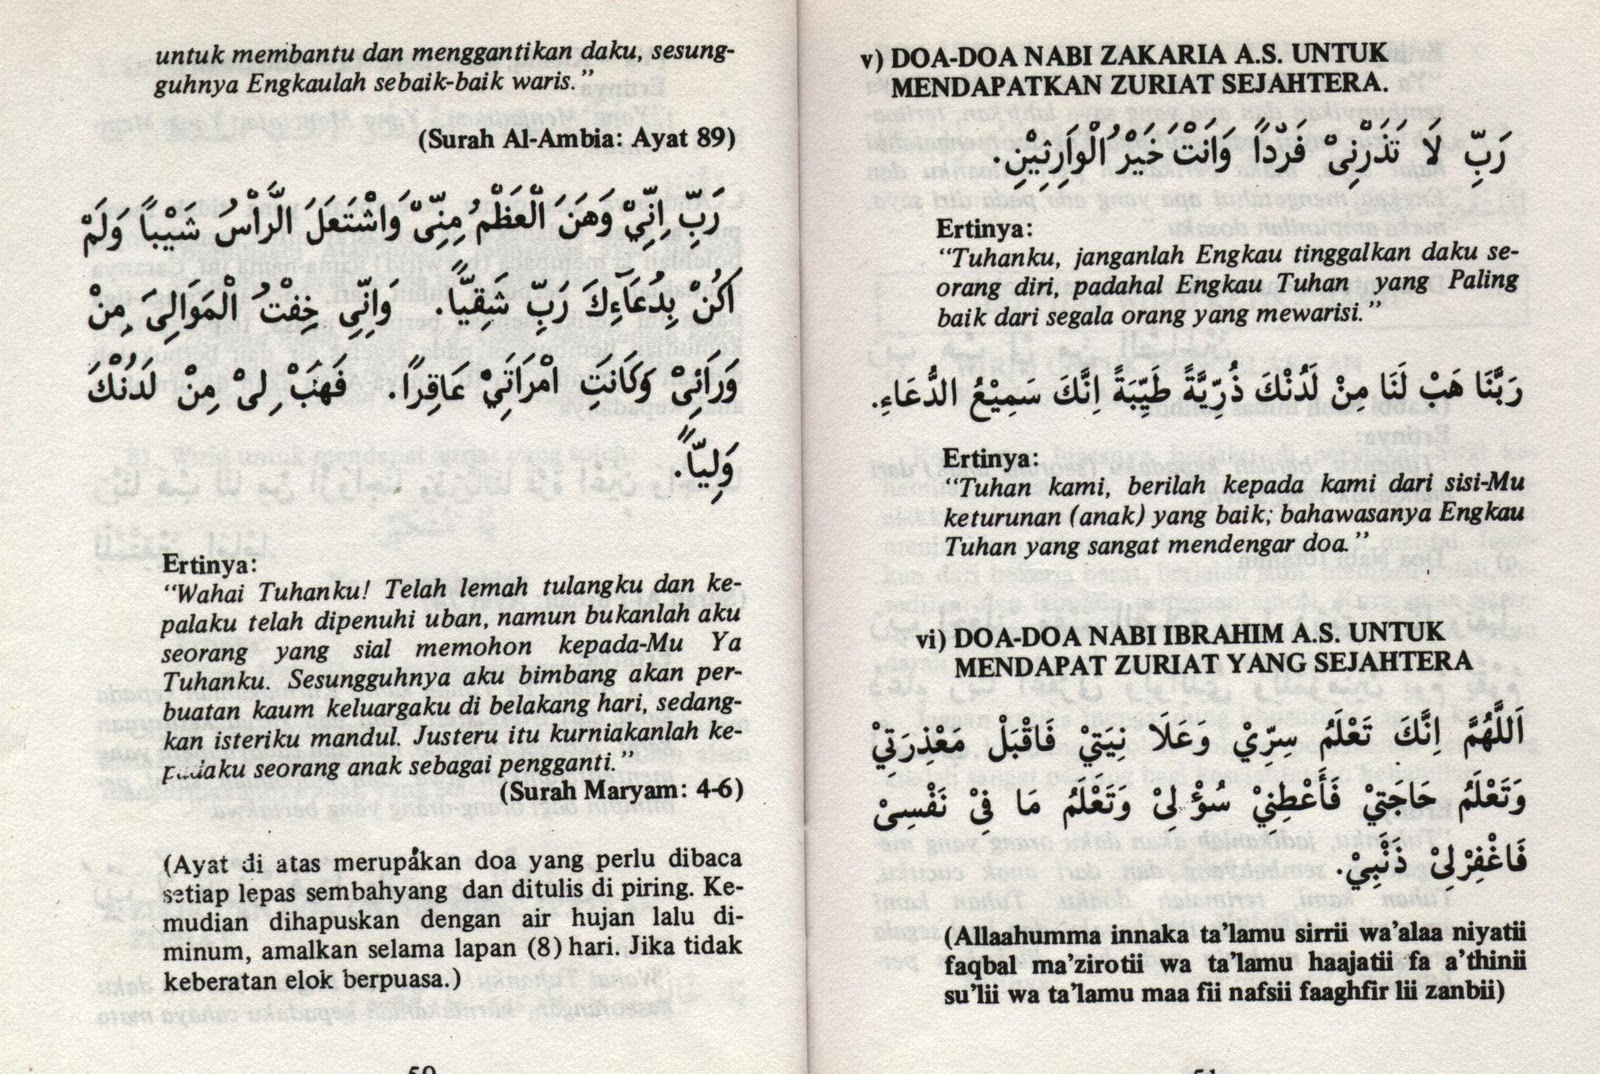 untuk membantu dan menggantikan daku, sesung-
guhnya Engkaulah sebaik-baik waris.”
(Surah Al-Ambia: Ayat 89)
رَبِّ اِنِّيْ وَهَنَ الْعَظْمُ مِنِّىْ وَاشْتَعَلَ الرَّاْسُ شَيْبًا وَلَمْ
اَكُنْ بِدُعَآءِكَ رَبِّ شَقِيًّا. وَاِنِّي خِفْتُ الْمَوَالِىَ مِنْ
وَرَائِىْ وَكَانَتِ امْرَاَتِيْ عَاقِرًا. فَهَبْ لِىْ مِنْ لَدُنْكَ
وَلِيًّا.
Ertinya:
“Wahai Tuhanku! Telah lemah tulangku dan ke-
palaku telah dipenuhi uban, namun bukanlah aku
seorang yang sial memohon kepada-Mu Ya
Tuhanku. Sesungguhnya aku bimbang akan per-
buatan kaum keluargaku di belakang hari, sedang-
kan isteriku mandul. Justeru itu kurniakanlah ke-
padaku seorang anak sebagai pengganti.”
(Surah Maryam: 4-6)
(Ayat di atas merupakan doa yang perlu dibaca
setiap lepas sembahyang dan ditulis di piring. Ke-
mudian dihapuskan dengan air hujan lalu di-
minum, amalkan selama lapan (8) hari. Jika tidak
keberatan elok berpuasa.)
v) DOA-DOA NABI ZAKARIA A.S. UNTUK
MENDAPATKAN ZURIAT SEJAHTERA.
رَبِّ لَا تَذَرْنِىْ فَرْدًا وَاَنْتَ خَيْرُ الْوَارِثِيْنِ.
Ertinya:
“Tuhanku, janganlah Engkau tinggalkan daku se-
orang diri, padahal Engkau Tuhan yang Paling
baik dari segala orang yang mewarisi.”
رَبَّنَا هَبْ لَنَا مِنْ لَدُنْكَ ذُرِّيَّةً طَيِّبَةً اِنَّكَ سَمِيْعُ الدُّعَاءِ.
Ertinya:
“Tuhan kami, berilah kepada kami dari sisi-Mu
keturunan (anak) yang baik; bahawasanya Engkau
Tuhan yang sangat mendengar doa.”
vi) DOA-DOA NABI IBRAHIM A.S. UNTUK
MENDAPAT ZURIAT YANG SEJAHTERA
اَللّٰهُمَّ اِنَّكَ تَعْلَمُ سِرِّيْ وَعَلَا نِيَتِيْ فَاقْبَلْ مَعْذِرَتِيْ
وَتَعْلَمُ حَاجَتِيْ فَأَعْطِنِيْ سُؤْلِىْ وَتَعْلَمُ مَا فِىْ نَفْسِىْ
فَاغْفِرْلِىْ ذَنْبِيْ.
(Allaahumma innaka ta’lamu sirrii wa’alaa niyatii
faqbal ma’zirotii wa ta’lamu haajatii fa a’thinii
su’lii wa ta’lamu maa fii nafsii faaghfir lii zanbii)